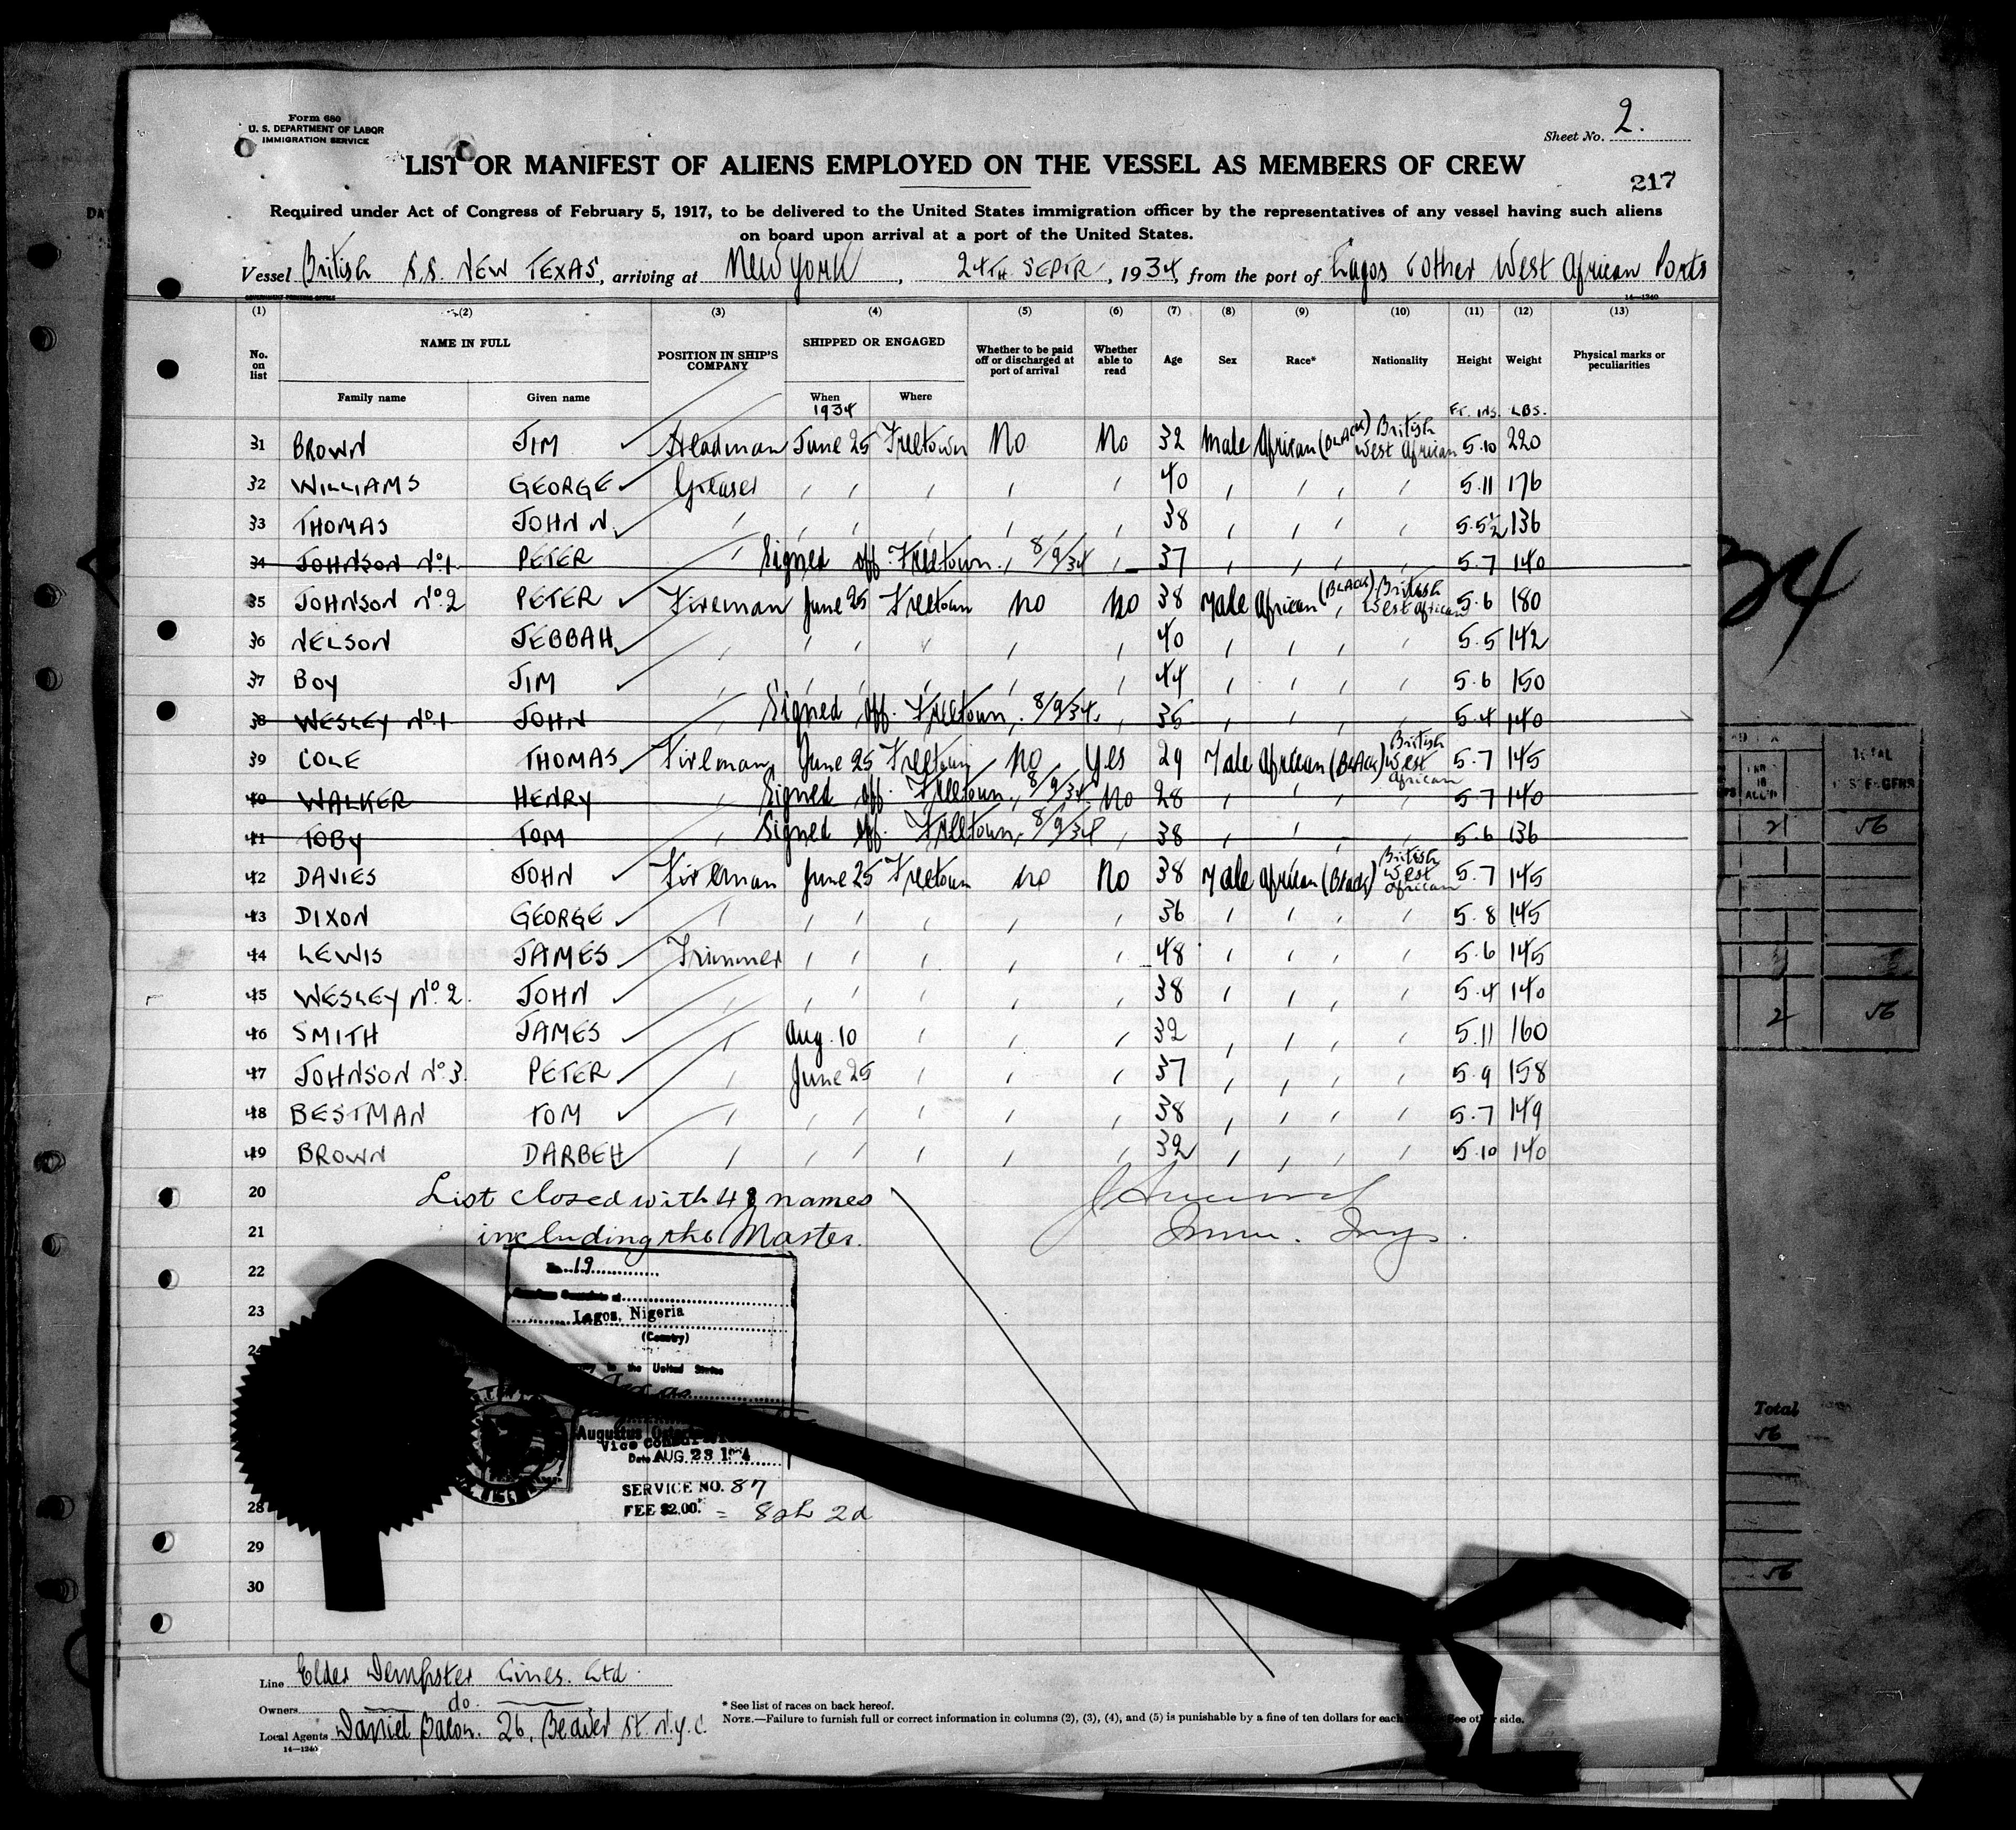 Form 680
U. S. DEPARTMENT OF LABOR
IMMIGRATION SERVICE
Sheet No. 2.
LIST OR MANIFEST OF ALIENS EMPLOYED ON THE VESSEL AS MEMBERS OF CREW
217
Required under Act of Congress of February 5, 1917, to be delivered to the United States immigration officer by the representatives of any vessel having such aliens
on board upon arrival at a port of the United States.
Vessel British S.S. NEW TEXAS, arriving at New York, 24TH SEPTR, 1934, from the port of Lagos & other West African Ports
GOVERNMENT PRINTING OFFICE 14—1240
(1) (2) (3) (4) (5) (6) (7) (8) (9) (10) (11) (12) (13)
No. on list NAME IN FULL POSITION IN SHIP'S COMPANY SHIPPED OR ENGAGED Whether to be paid off or discharged at port of arrival Whether able to read Age Sex Race* Nationality Height Weight Physical marks or peculiarities
Family name Given name When Where
1934 FT. INS. LBS.
31 BROWN JIM Headman June 25 Freetown No No 32 Male African (BLACK) British West African 5.10 220
32 WILLIAMS GEORGE Greaser " " " " " 40 " " " " 5.11 176
33 THOMAS JOHN N. " " " " " " 38 " " " " 5.5½ 136
34 JOHNSON No.1 PETER " Signed off Freetown. 8/9/34 37 " " " " 5.7 140
35 JOHNSON No.2 PETER Fireman June 25 Freetown No No 38 Male African (BLACK) British West African 5.6 180
36 NELSON JEBBAH " " " " " " 40 " " " " 5.5 142
37 BOY JIM " " " " " " 44 " " " " 5.6 150
38 WESLEY No.1 JOHN " Signed off. Freetown. 8/9/34. " 35 " " " " 5.4 140
39 COLE THOMAS Fireman June 25 Freetown No Yes 29 Male African (BLACK) British West African 5.7 145
40 WALKER HENRY " Signed off. Freetown. 8/9/34 No 28 " " " " 5.7 140
41 TOBY TOM " Signed off. Freetown. 8/9/34 " 38 " " " " 5.6 136
42 DAVIES JOHN Fireman June 25 Freetown No No 38 Male African (Black) British West African 5.7 145
43 DIXON GEORGE " " " " " " 36 " " " " 5.8 145
44 LEWIS JAMES Trimmer " " " " " 48 " " " " 5.6 145
45 WESLEY No.2. JOHN " " " " " " 38 " " " " 5.4 140
46 SMITH JAMES " Aug. 10 " " " 32 " " " " 5.11 160
47 JOHNSON No.3. PETER " June 25 " " " 37 " " " " 5.9 158
48 BESTMAN TOM " " " " " " 38 " " " " 5.7 149
49 BROWN DARBEH " " " " " " 32 " " " " 5.10 140
20 List closed with 48 names
21 including the Master. Imm. Insp.
22 No. 19
23 Lagos, Nigeria
(Country)
to the United States
Augustus
Vice Consul
Date AUG 23 1934
SERVICE NO. 87
28 FEE $2.00. = 8sh 2d
29
30
Line Elder Dempster Lines. Ltd.
Owners do.
Local Agents Daniel Bacon. 26, Beaver St. N.Y.C.
14—1240
* See list of races on back hereof.
NOTE.—Failure to furnish full or correct information in columns (2), (3), (4), and (5) is punishable by a fine of ten dollars for each See other side.
34
TOTAL
2 56
2 56
Total
56
56